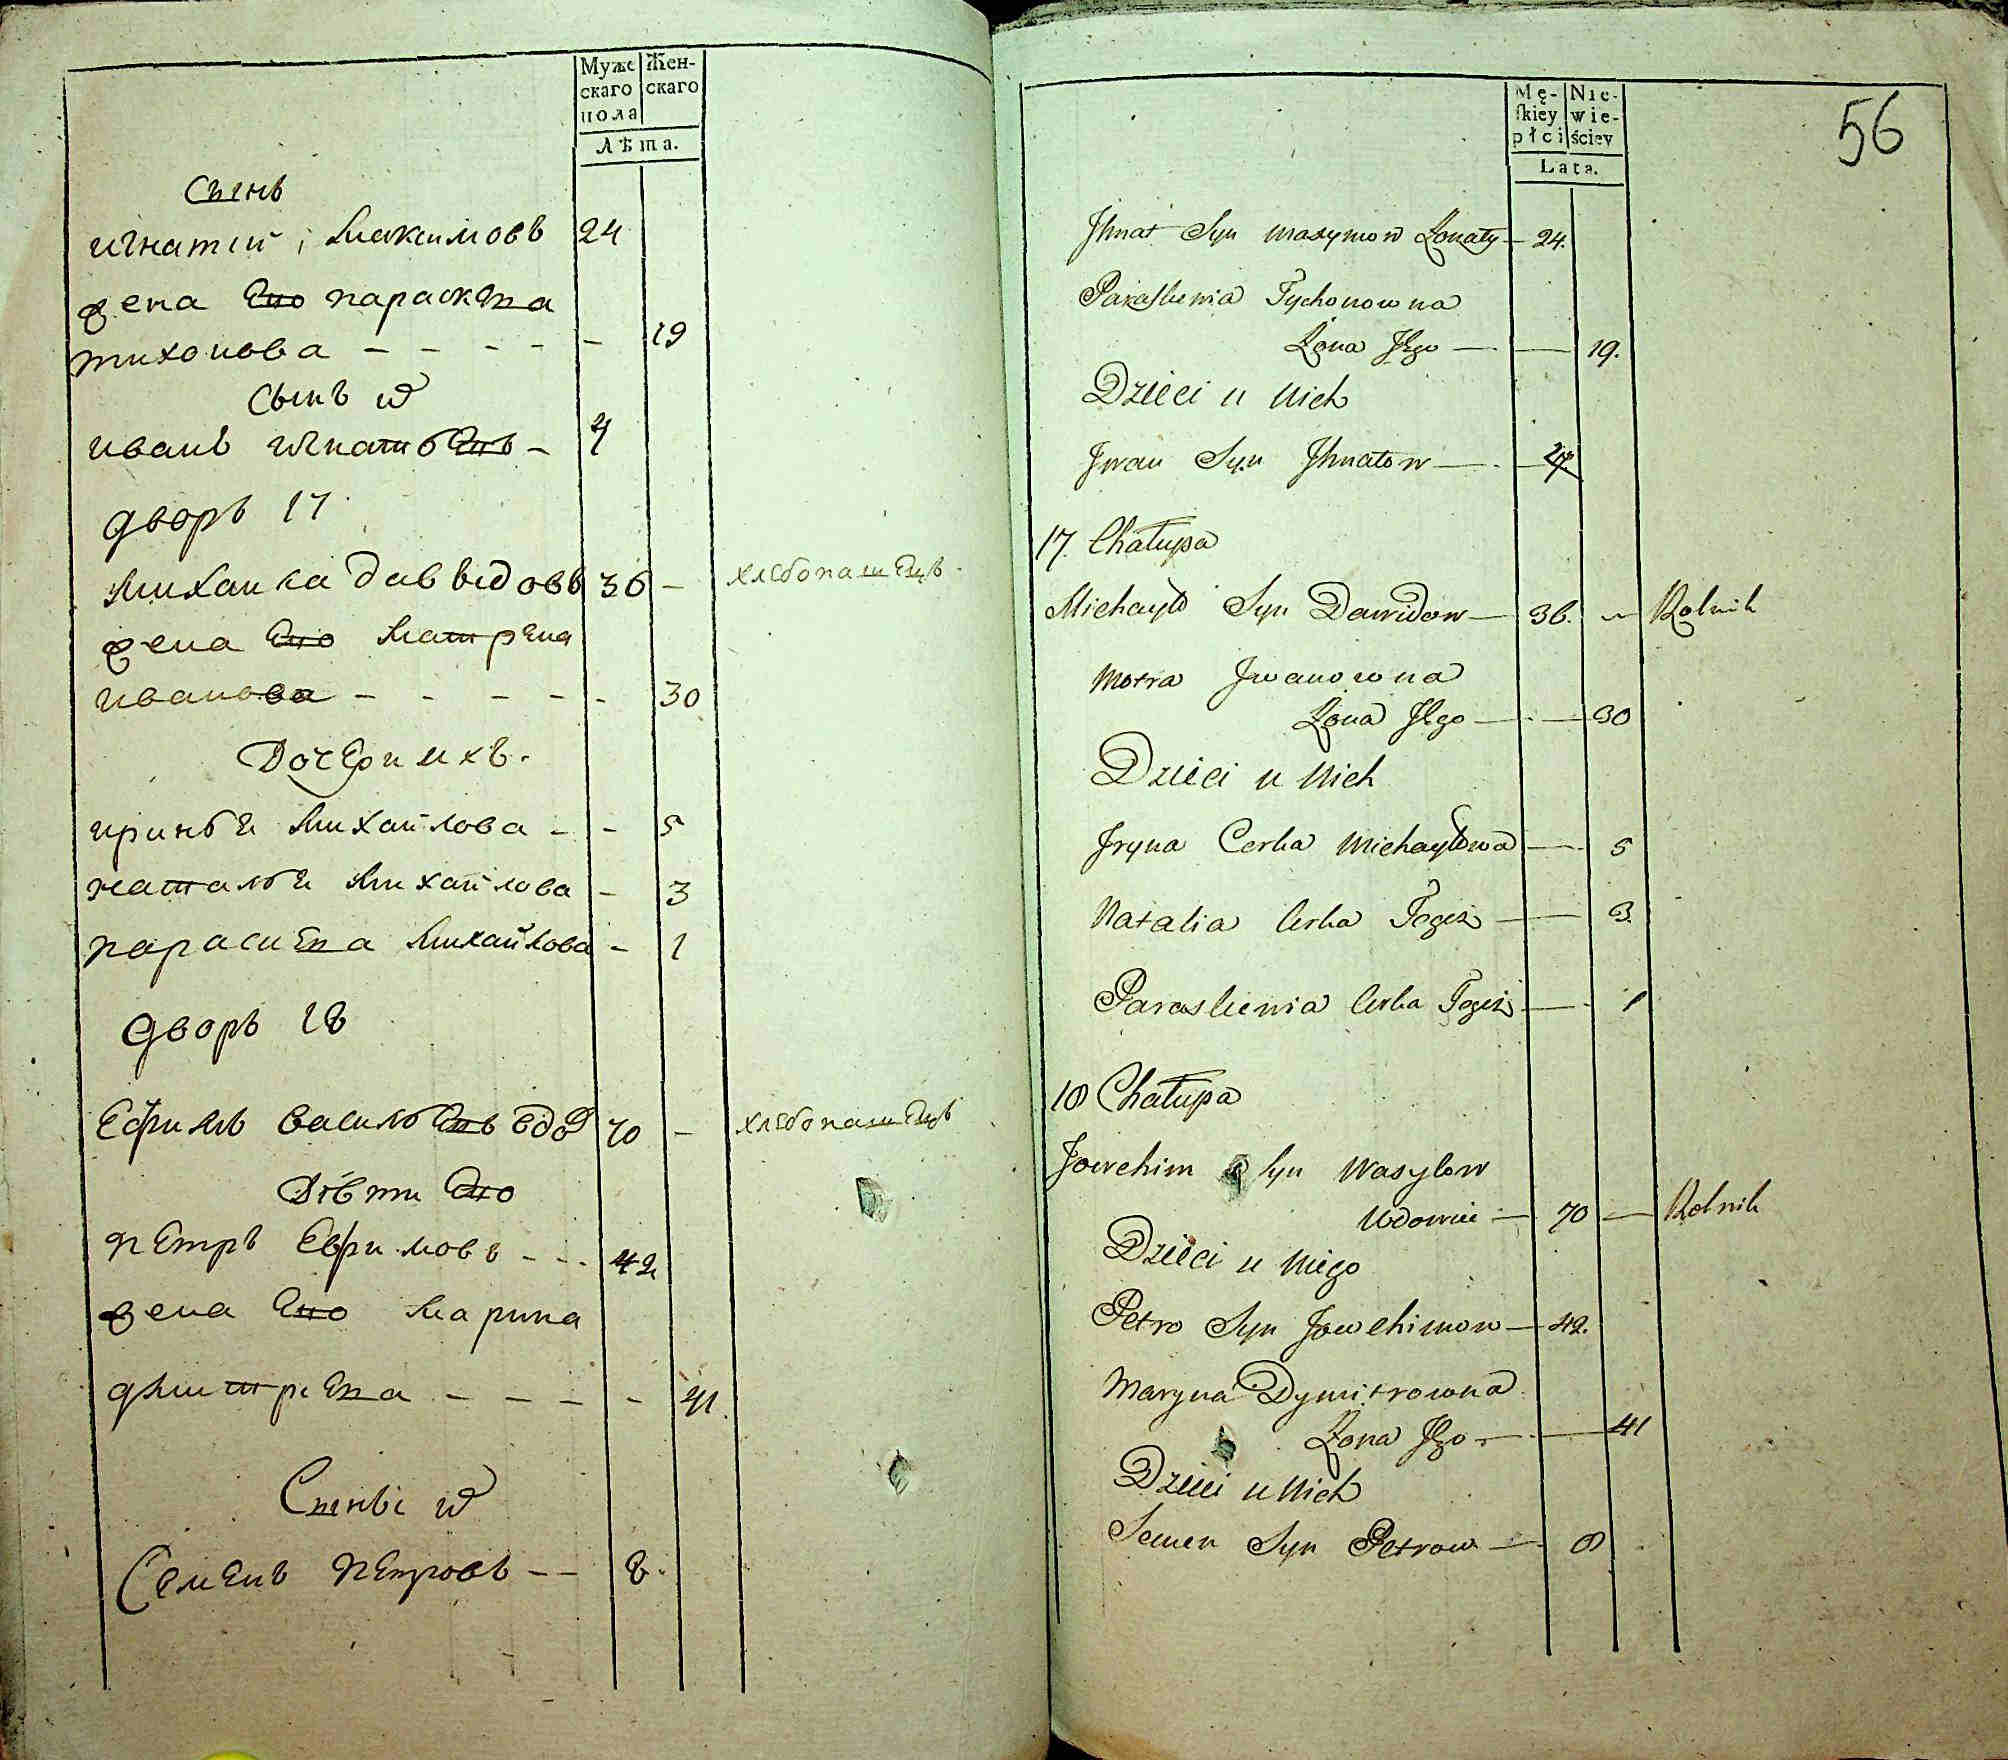 Муже
скаго
пола
Жен-
скаго
Лѣта.
Сынъ
игнатий Максимовъ 24
жена Его параскева
тихонова - - - - - 19
Сынъ
иванъ игнатьевъ - 4
дворъ 17
Михайла давыдовъ 36 - хлебопашецъ
жена Его Матрена
иванова - - - - - 30
Дочери ихъ.
ириньѧ Михайлова - - 5
натальѧ Михайлова - 3
параскева Михайлова - 1
дворъ 18
Ефимъ васильевъ вдов 70 - хлебопашецъ
Дѣти Его
петръ Ефимовъ - - - 42
жена Его Марина
дмитрева - - - - - 41.
Сыны
Семенъ петровъ - - 8.
56
Mę-
skiey
płci
Nie-
wie-
ściey
Lata.
Jhnat Syn Maxymow Żonaty - 24.
Paraskewia Tychonowna
Żona Jego - - 19.
Dzieci u Nich
Jwan Syn Jhnatow - - 4
17. Chałupa
Michayło Syn Dawidow - 36. - Rolnik
Motra Jwanowna
Żona Jego - - 30
Dzieci u Nich
Jryna Corka Michayłowa - 5
Natalia Corka Tegoż - 3.
Paraskewia Corka Tegoż - 1
18 Chałupa
Jowchim Syn Wasylow
Wdowiec - 70 - Rolnik
Dzieci u Niego
Petro Syn Jowchimow - 42.
Maryna Dymitrowna
Żona Jego - - 41
Dzieci u Nich
Semen Syn Petrow - 8